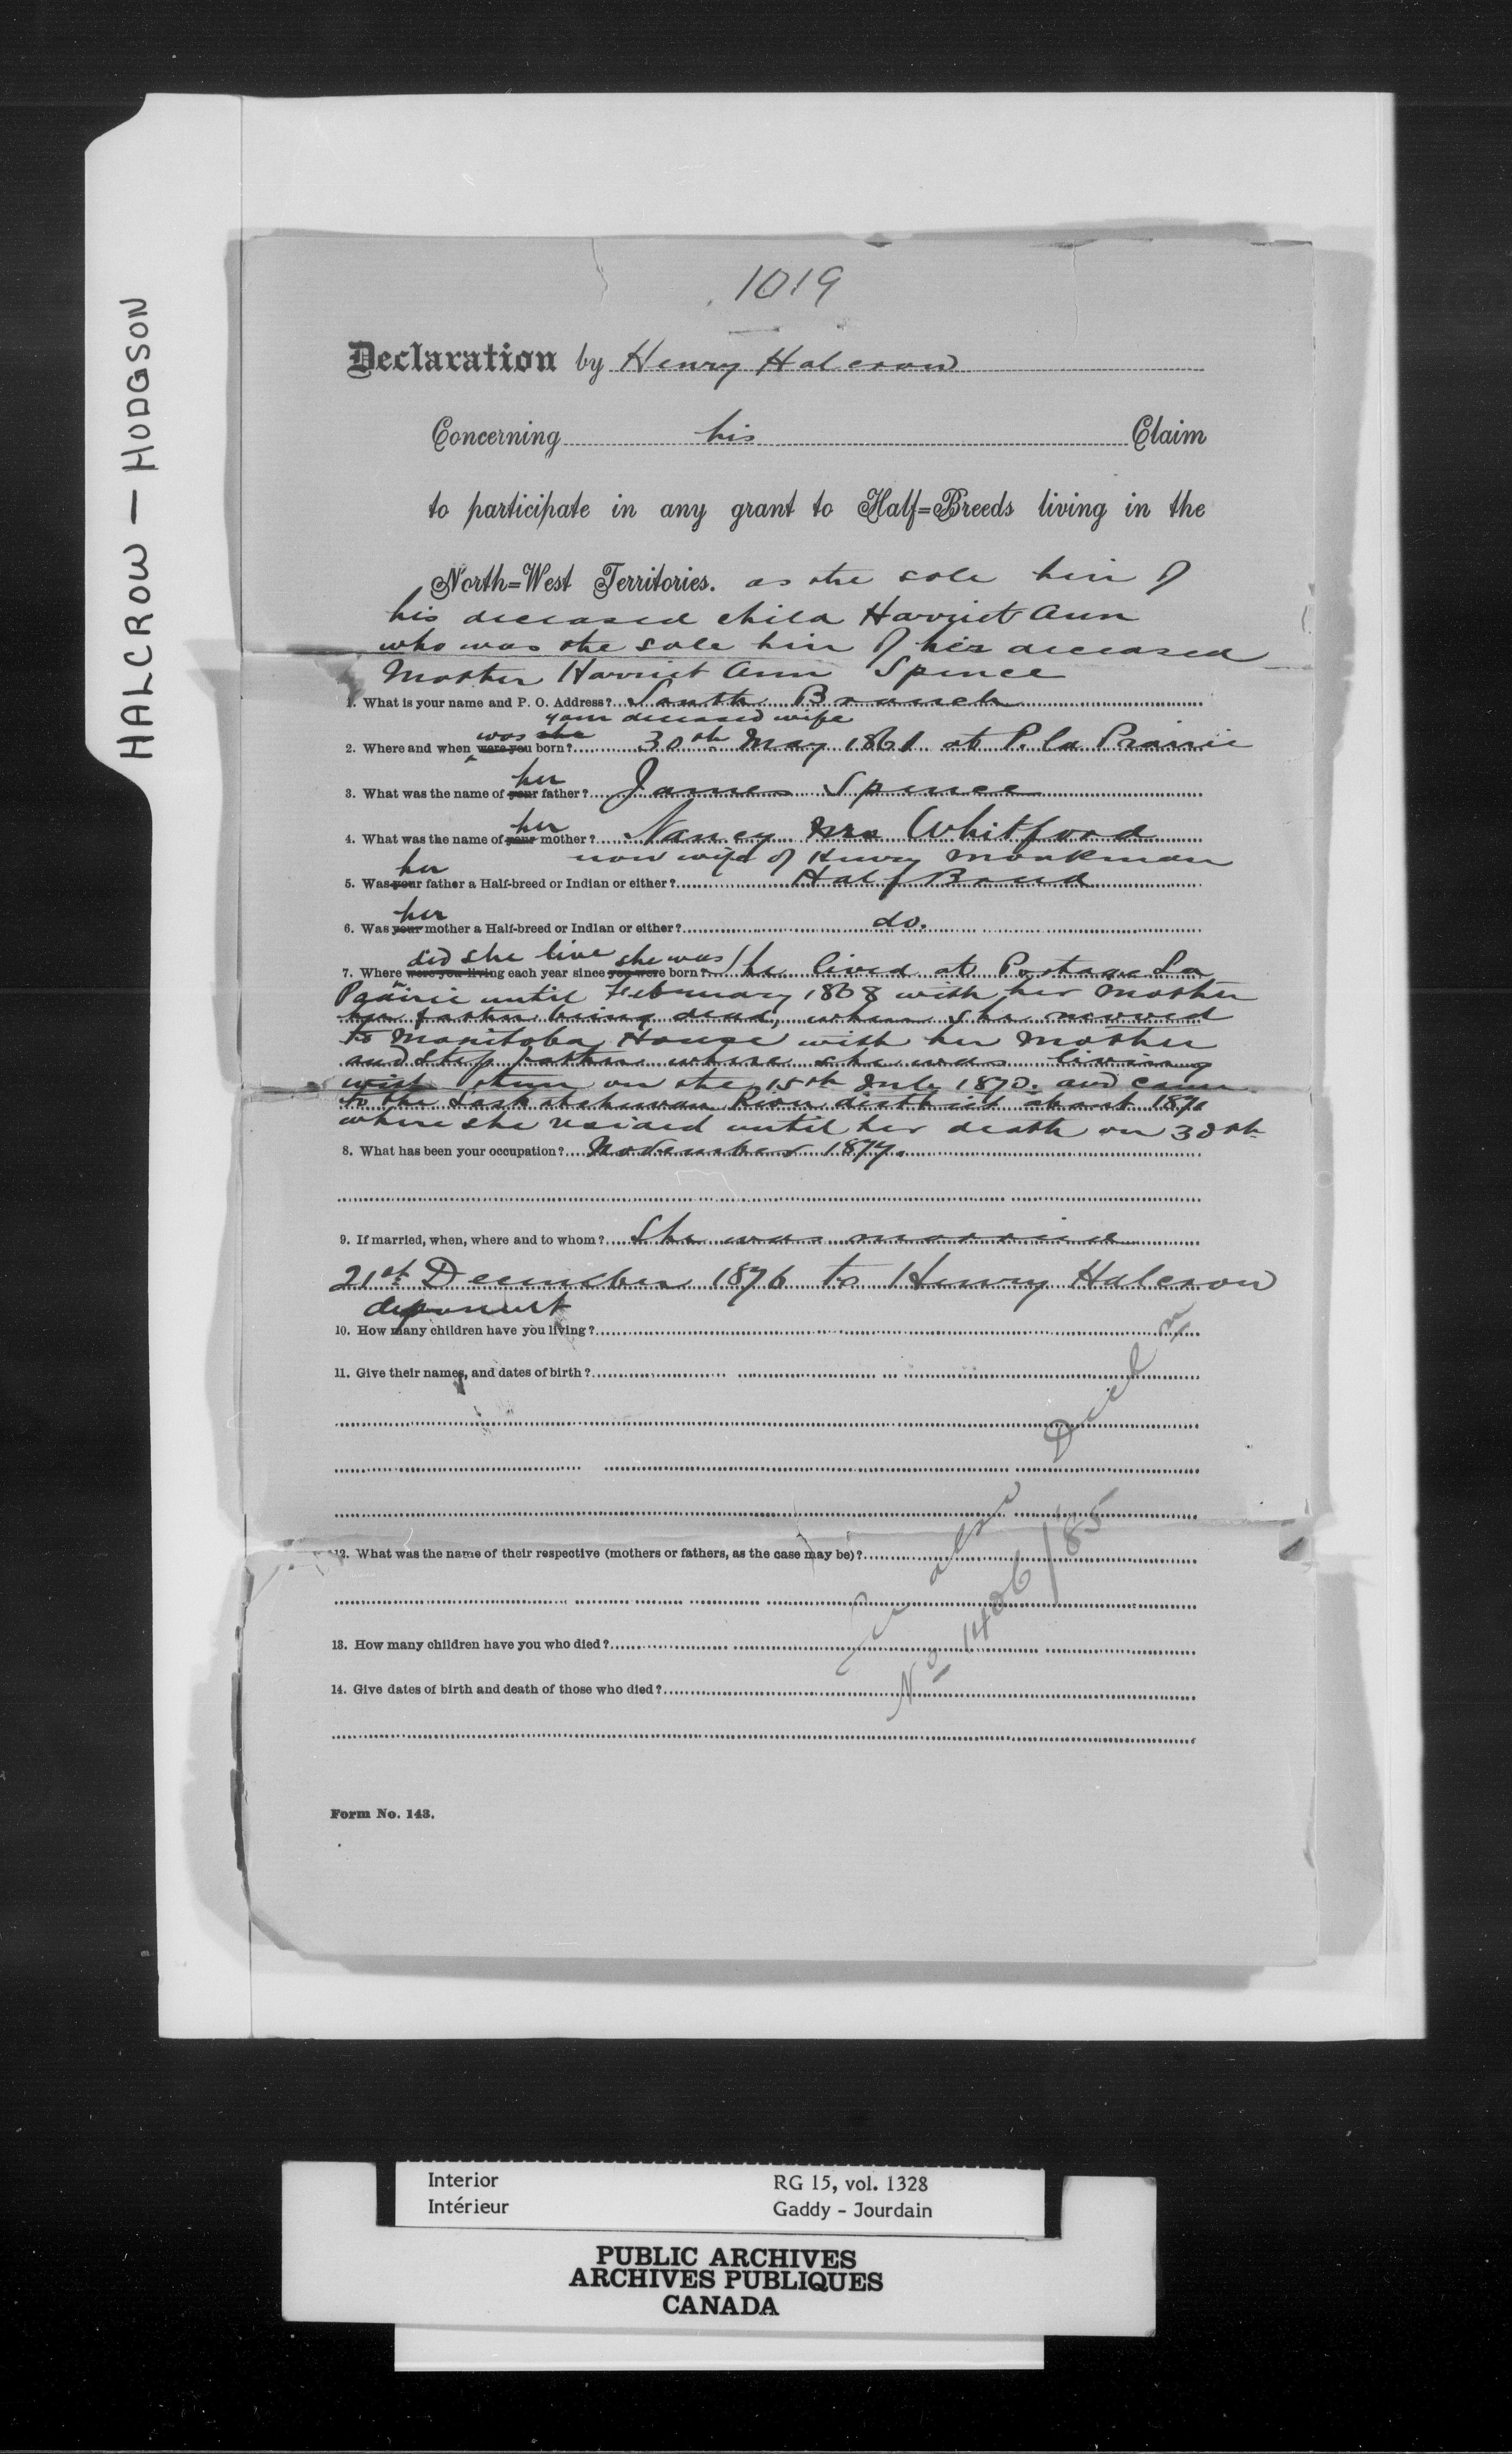 HALCROW — HODGSON
1019
Declaration by Henry Halcrow
Concerning his Claim
to participate in any grant to Half=Breeds living in the
North=West Territories. as the sole heir of
his deceased child Harriet Ann
who was the sole heir of her deceased
Mother Harriet Ann Spence
1. What is your name and P. O. Address? South Branch
your deceased wife
was she
2. Where and when were you born? 30th May 1861 at P. la Prairie
her
3. What was the name of your father? James Spence
her
4. What was the name of your mother? Nancy Whitford
now wife of Henry Monkman
her
5. Was your father a Half-breed or Indian or either? Half Breed
her
6. Was your mother a Half-breed or Indian or either? do.
did she live she was
7. Where were you living each year since you were born? She lived at Portage La
Prairie until February 1868 with her mother
her father being dead, when she moved
to Manitoba House with her mother
and step father where she was living
with them on the 15th July 1870. and came
to the Saskatchewan River district about 1871
where she resided until her death on 30th
8. What has been your occupation? November 1877.
9. If married, when, where and to whom? She was married
21st December 1876 to Henry Halcrow
deponent
10. How many children have you living?
11. Give their names, and dates of birth?
12. What was the name of their respective (mothers or fathers, as the case may be)?
13. How many children have you who died?
14. Give dates of birth and death of those who died?
See also
No 1406/85
Form No. 143.
Interior
Intérieur
RG 15, vol. 1328
Gaddy - Jourdain
PUBLIC ARCHIVES
ARCHIVES PUBLIQUES
CANADA